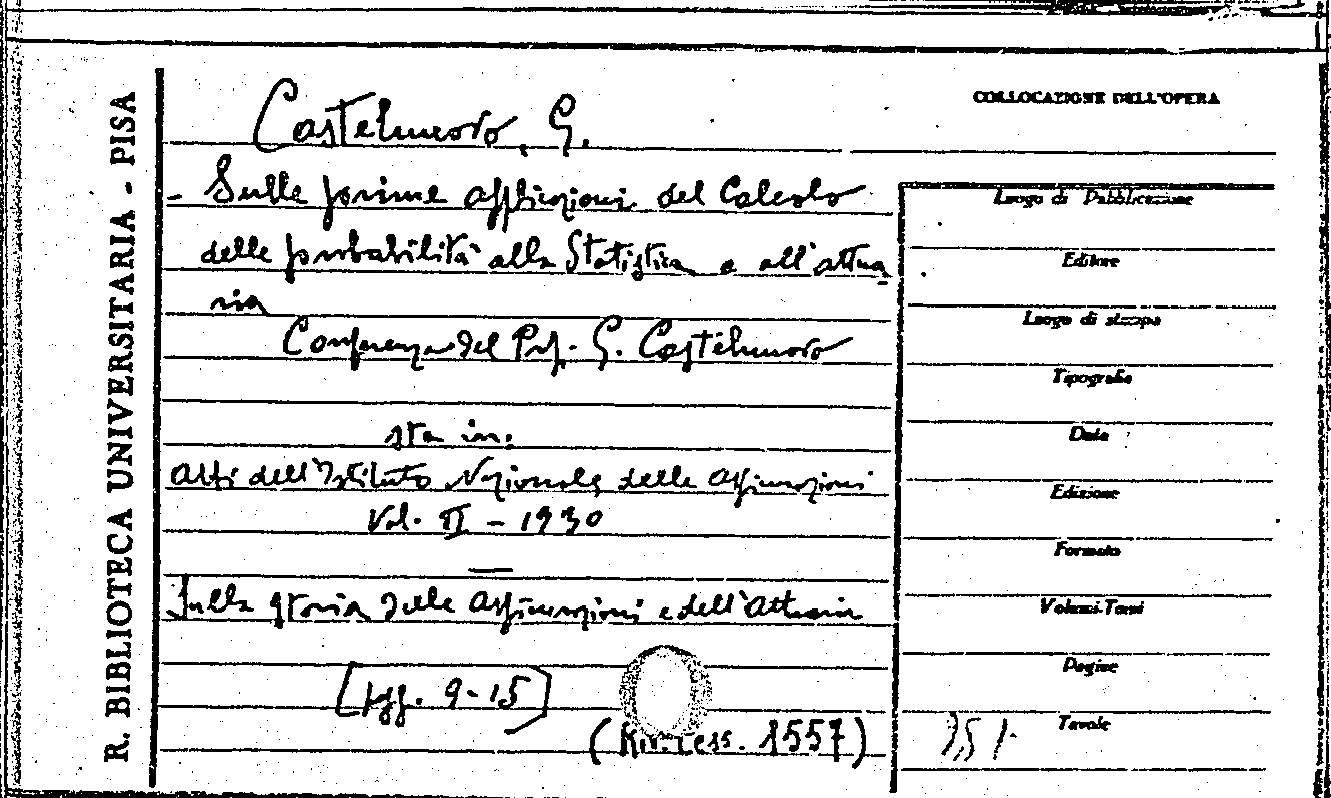 R. BIBLIOTECA UNIVERSITARIA - PISA
Castelnuovo, G.
- Sulle prime applicazioni del Calcolo
delle probabilità alla Statistica e all'attua
ria
Conferenza del Prof. G. Castelnuovo
sta in:
Atti dell'Istituto Nazionale delle Assicurazioni
Vol. II - 1930
Sulla storia delle Assicurazioni e dell'Attuaria
[pgg. 9-15]
(Riv. 1557)
COLLOCAZIONE DELL'OPERA
Luogo di Pubblicazione
Editore
Luogo di stampa
Tipografia
Data
Edizione
Formato
Volumi-Tomi
Pagine
Tavole